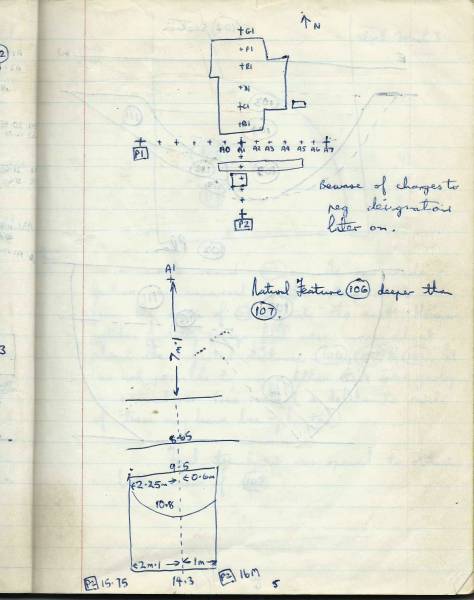 +G1
↑N
+F1
+R1
+N1
+C1
+B1
A0 A1 A2 A3 A4 A5 A6 A7
P1
P2
Beware of changes to
peg designations
later on.
A1
Natural Feature 106 deeper than
107.
7m.1
8.65
9.5
2.25m 0.6m
10.8
2m.1 1m
P2 15.75 14.3 P2 16M
5